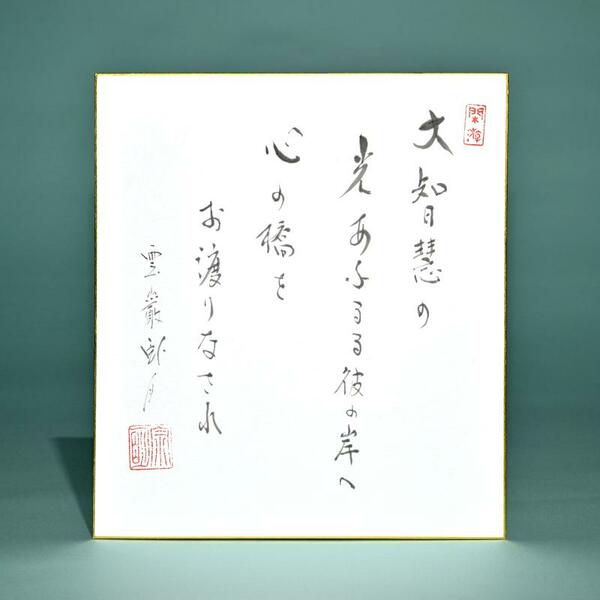 大智慧の
光あふるる彼の岸へ
心の橋を
お渡りなされ
雲巌